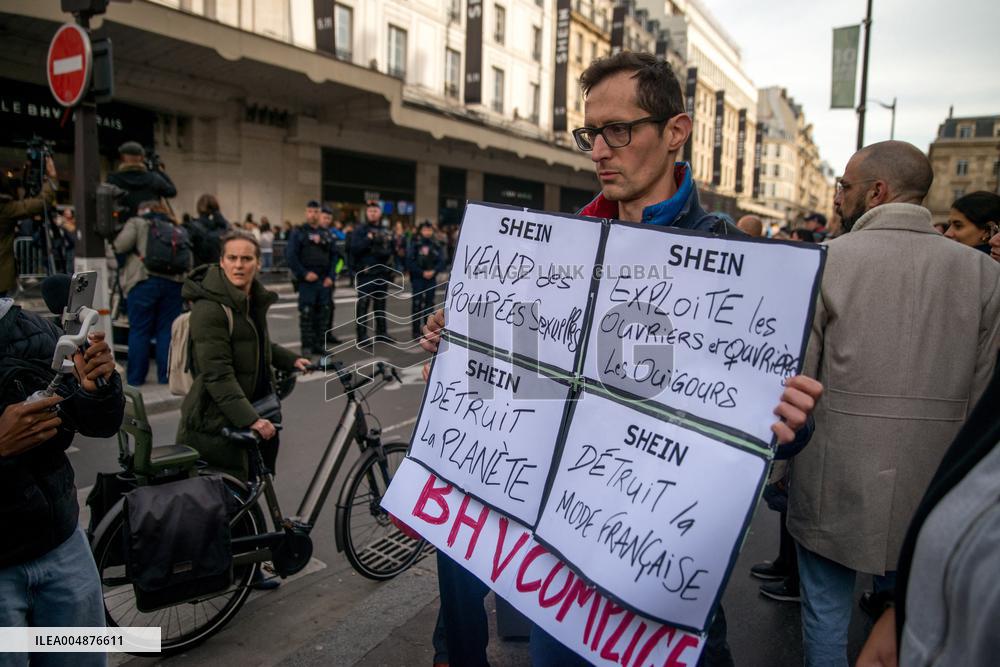 LE BHV MARAIS
SHEIN
SHEIN
VEND des
POUPÉES sexuelles
SHEIN
EXPLOITE les
OUVRIERS et OUVRIÈRES
Les OUÏGOURS
SHEIN
DÉTRUIT
la PLANÈTE
SHEIN
DÉTRUIT la
MODE FRANÇAISE
BHV COMPLICE
IMAGE LINK GLOBAL
ILG
ILEA004876611